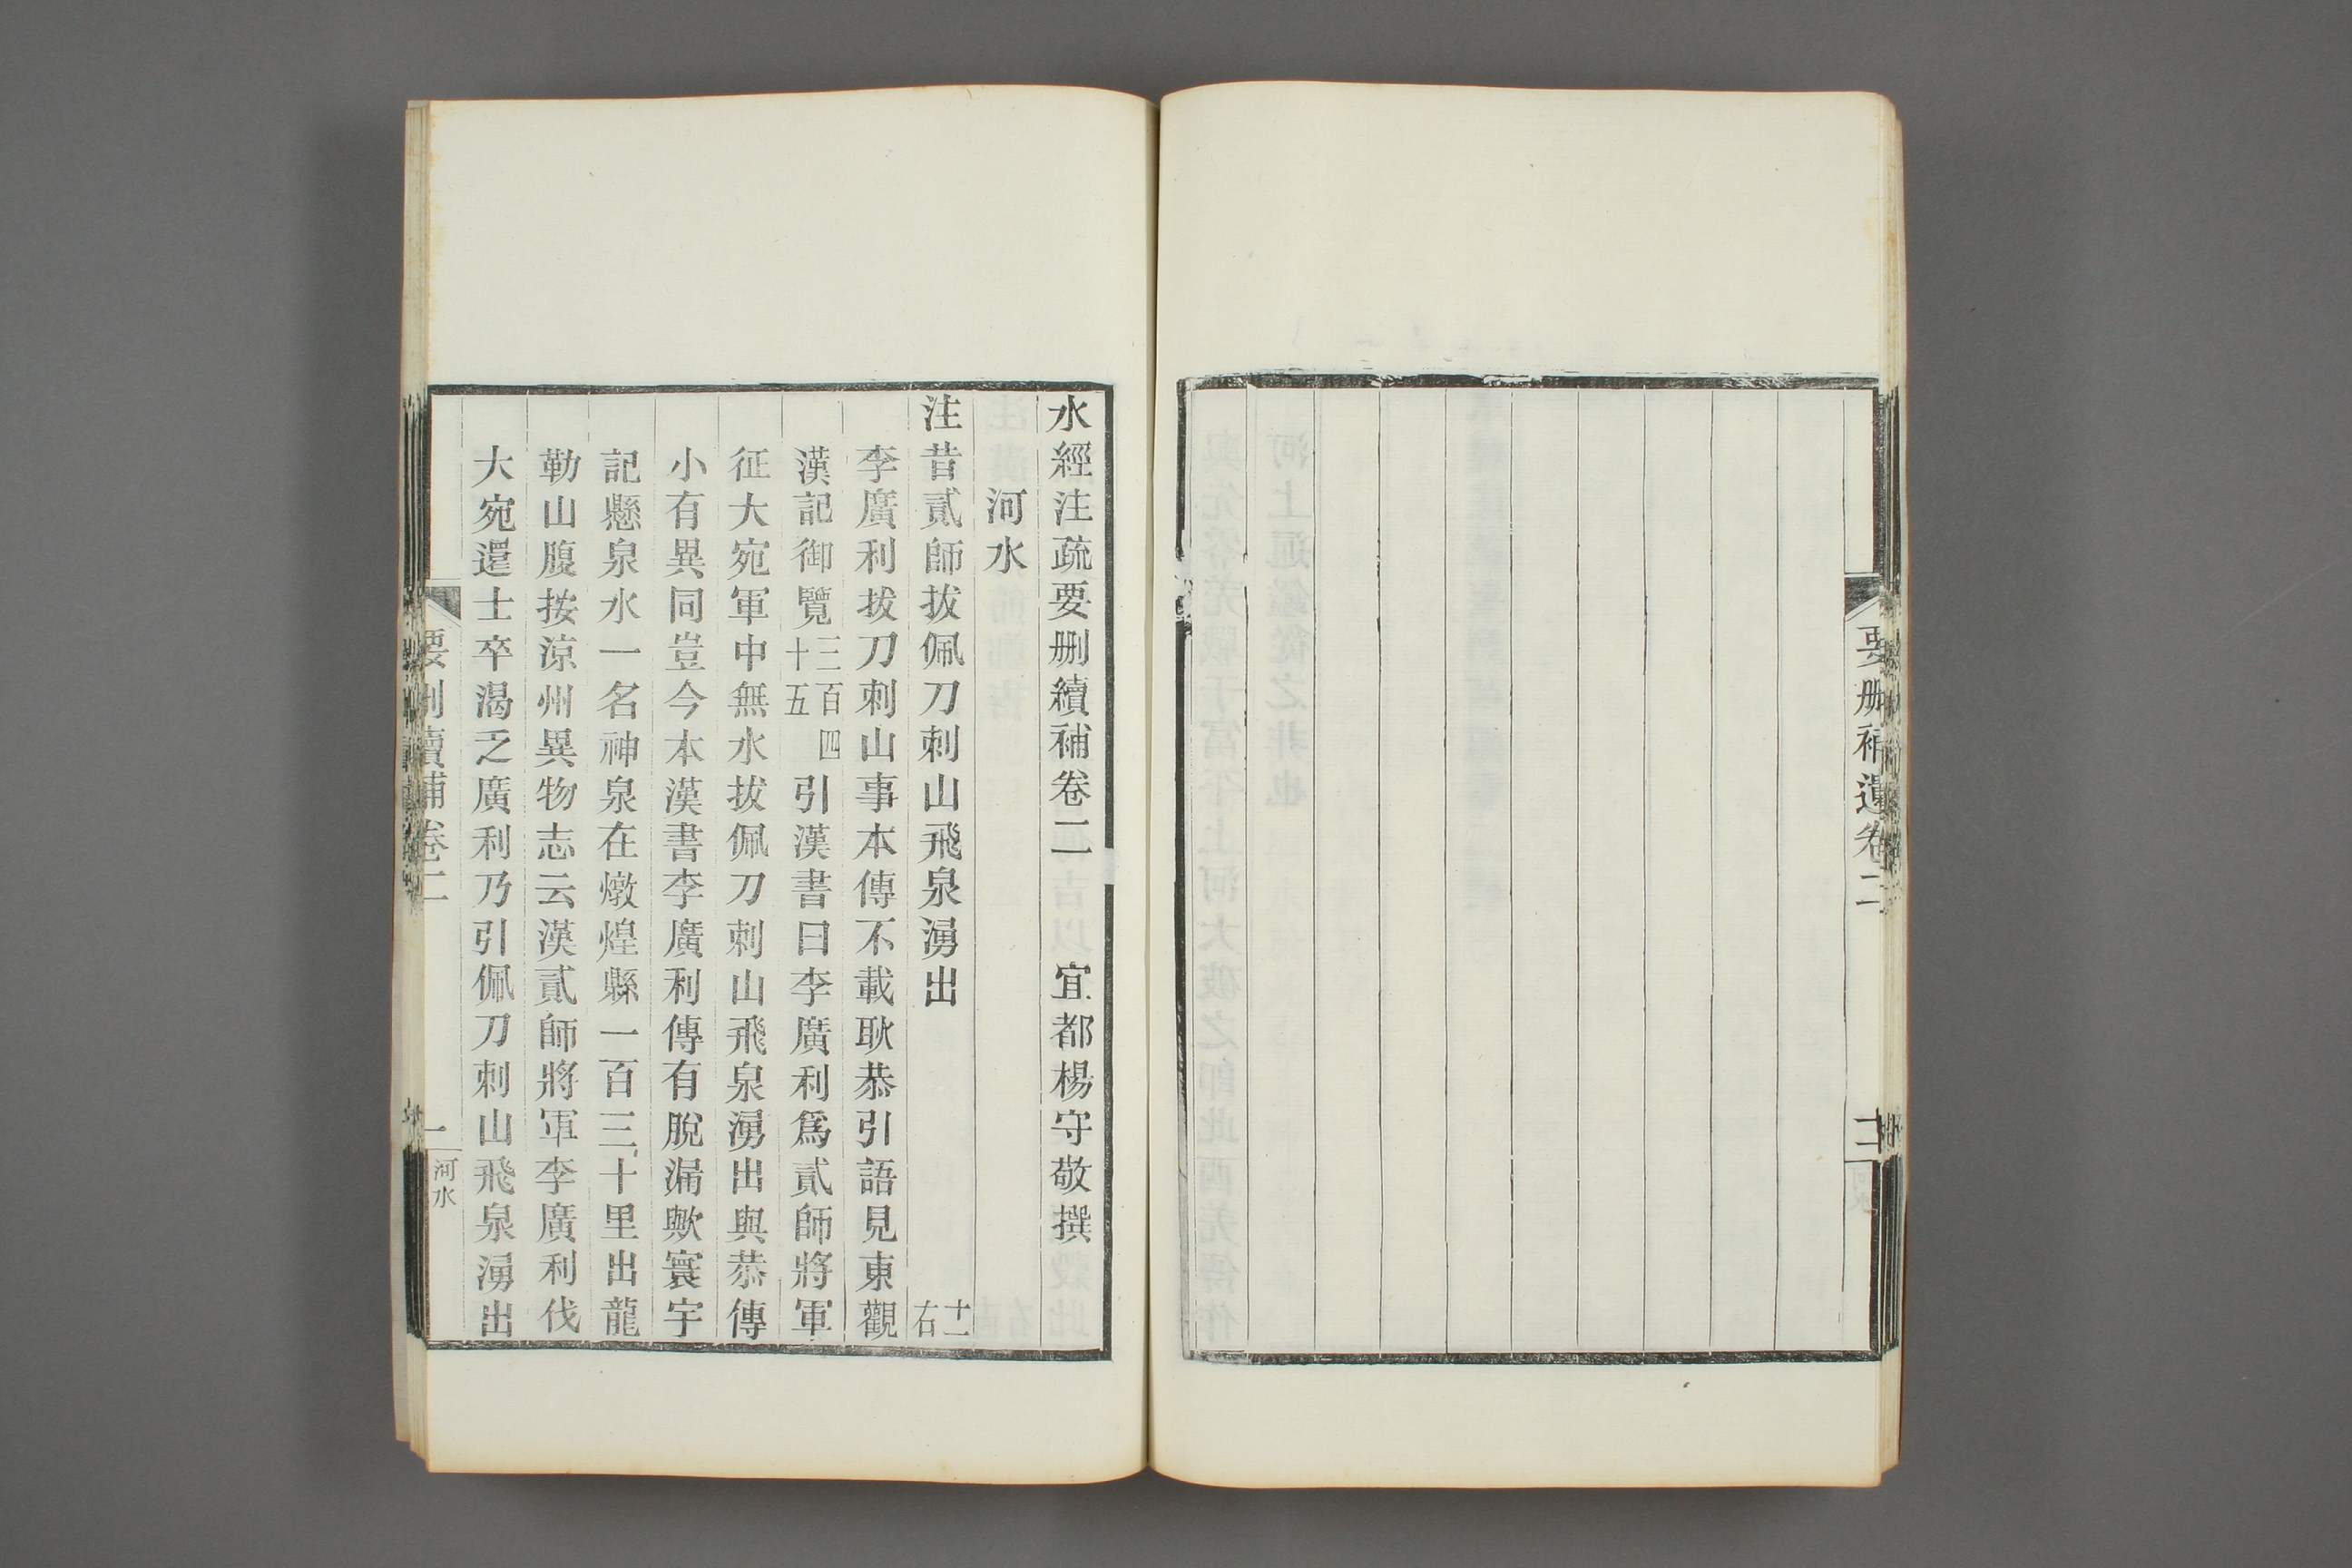 要删補遺卷二
水經注疏要删續補卷二　宜都楊守敬撰
河水
注昔貳師拔佩刀刺山飛泉湧出　十一右
李廣利拔刀刺山事本傳不載耿恭引語見東觀
漢記御覽三百四十五引漢書曰李廣利爲貳師將軍
征大宛軍中無水拔佩刀刺山飛泉湧出與恭傳
小有異同豈今本漢書李廣利傳有脫漏歟寰宇
記懸泉水一名神泉在燉煌縣一百三十里出龍
勒山腹按涼州異物志云漢貳師將軍李廣利伐
大宛還士卒渴乏廣利乃引佩刀刺山飛泉湧出
要删續補卷二
一
河水